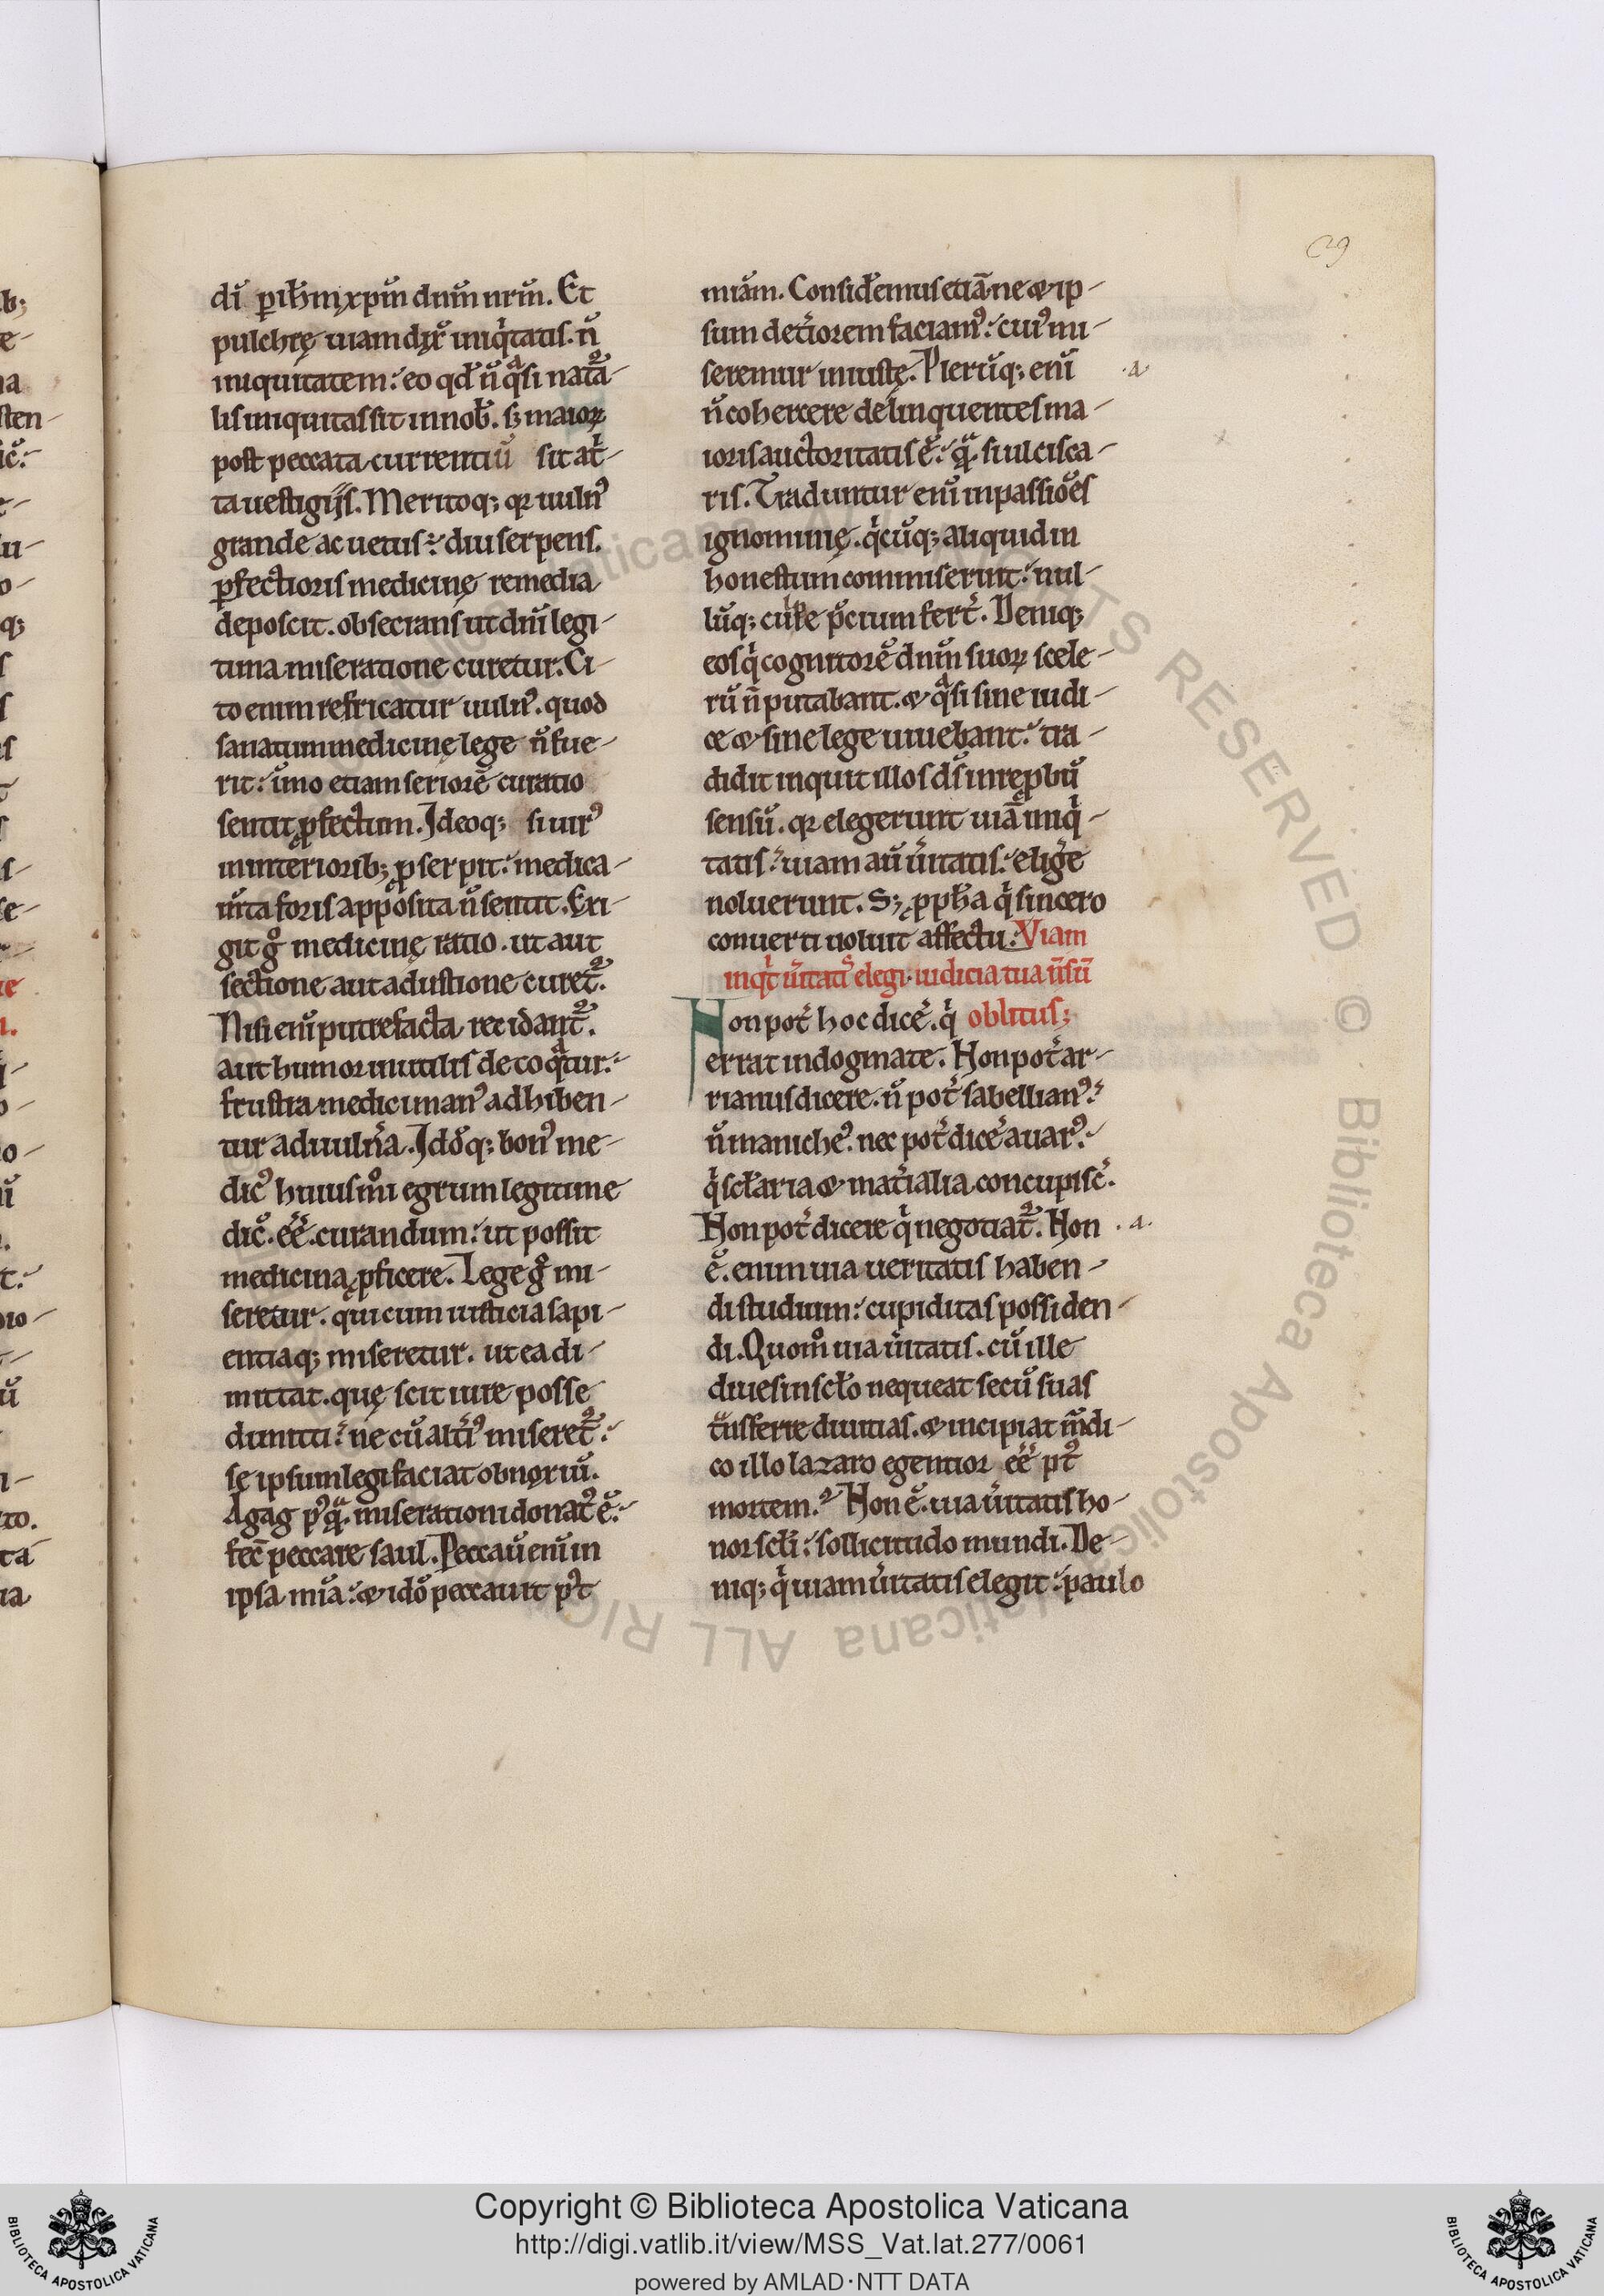 29
dī ꝑ ih̄m xp̄m dn̄m nr̄m. Et
pulchrę uiam dix̄ iniq̇tatis. n̄
iniquitatem: eo qd̄ n̄ qᷓsi natᷓa-
lis iniquitas sit in nob̄. sꝫ maioꝝ
post peccata currentiū sit at̄-
ta uestigijs. Meritoqꝫ qꝛ uulnꝰ
grande ac uetus: diu serpens.
ꝑfectioris medicinę remedia
deposcit. obsecrans ut dn̄i legi-
tima miseratione curetur. Ci-
to enim refricatur uulnꝰ. quod
sanatum medicinę lege n̄ fue-
rit: ūmo etiam seriorē curatio
sentit ꝓfectum. Ideoqꝫ si uirꝰ
in interioribꝫ ꝓserpit: medica-
m̄ta foris apposita n̄ sentit. Exi-
git gͦ medicinę ratio. ut aut
sectione aut adustione curet᷑.
Nisi enī putrefacta recidant᷑.
aut humor inutilis decoqᷓtur:
frustra medici manꝰ adhiben-
tur ad uuln̄a. Idoͦqꝫ bonꝰ me-
dicꝰ huiusmͦi egrum legitime
dic̄. ēē. curandum: ut possit
medicina ꝓficere. Lege gͦ mi-
seretur. qui cum iusticia sapi-
entiaqꝫ miseretur. ut ea di-
mittat. quę scit iure posse
dimitti: ne cū alt̄iꝰ miseret᷑:
se ipsum legi faciat obnoxiū.
Agag pꝰqᷓ. miserationi donatꝰ ē:
fec̄ peccare saul. Peccau̅ enī in
ipsa mīa: & idoͦ peccauit pꝰt
mīam. Consid̄emus etiā ne & ip-
sum det̄iorem faciamꝰ: cuiꝰ mi-
seremur iniustę. Plerūqꝫ enī
.a.
n̄ cohercere delinquentes ma-
ioris auctoritatis ē: qᷓ. si ulcisca-
ris. Traduntur enī in passiōes
ignominię. q̇cūqꝫ aliquid in
honestum commiserint: nul-
lūqꝫ culpe p̄cium fert̄. Deniqꝫ
eos q̇ cognitorē dn̄m suoꝝ scele-
rū n̄ putabant. & qᷓsi sine iudi-
ce & sine lege uiuebant: tra-
didit inquit illos ds̄ in reꝓbū
sensū. qꝛ elegerunt uiā iniq̇-
tatis: uiam aū u̅itatis: elig̅e
noluerunt. Sꝫ ꝓph̄a q̇ sincero
conuerti uoluit affectu: Viam
inq̇t u̅itatꝭ elegi. iudicia tua n̄ sū
Non pot̄ hoc dic̄e. q̇ oblitus;
errat in dogmate. Non pot̄ ar-
rianus dicere. n̄ pot̄ sabellianꝰ:
n̄ manicheꝰ. nec pot̄ dic̄e auarꝰ:
q̇ scl̄aria & mat̄ialia concupisc̄.
Non pot̄ dicere q̇ negotiat᷑. Non
.a.
ē. enim uia ueritatis haben-
di studium: cupiditas possiden
di. Quomͦ uia u̅itatis. cū ille
diues in scl̄o nequeat secū suas
tᷓnsferre diuitias. & incipiat m̄di-
co illo lazaro egentior ēē pꝰt
mortem. Non ē. uia u̅itatis ho-
nor scl̄i: sollicitudo mundi. De-
niqꝫ q̇ uiam u̅itatis elegit: paulo
Copyright © Biblioteca Apostolica Vaticana
http://digi.vatlib.it/view/MSS_Vat.lat.277/0061
powered by AMLAD·NTT DATA